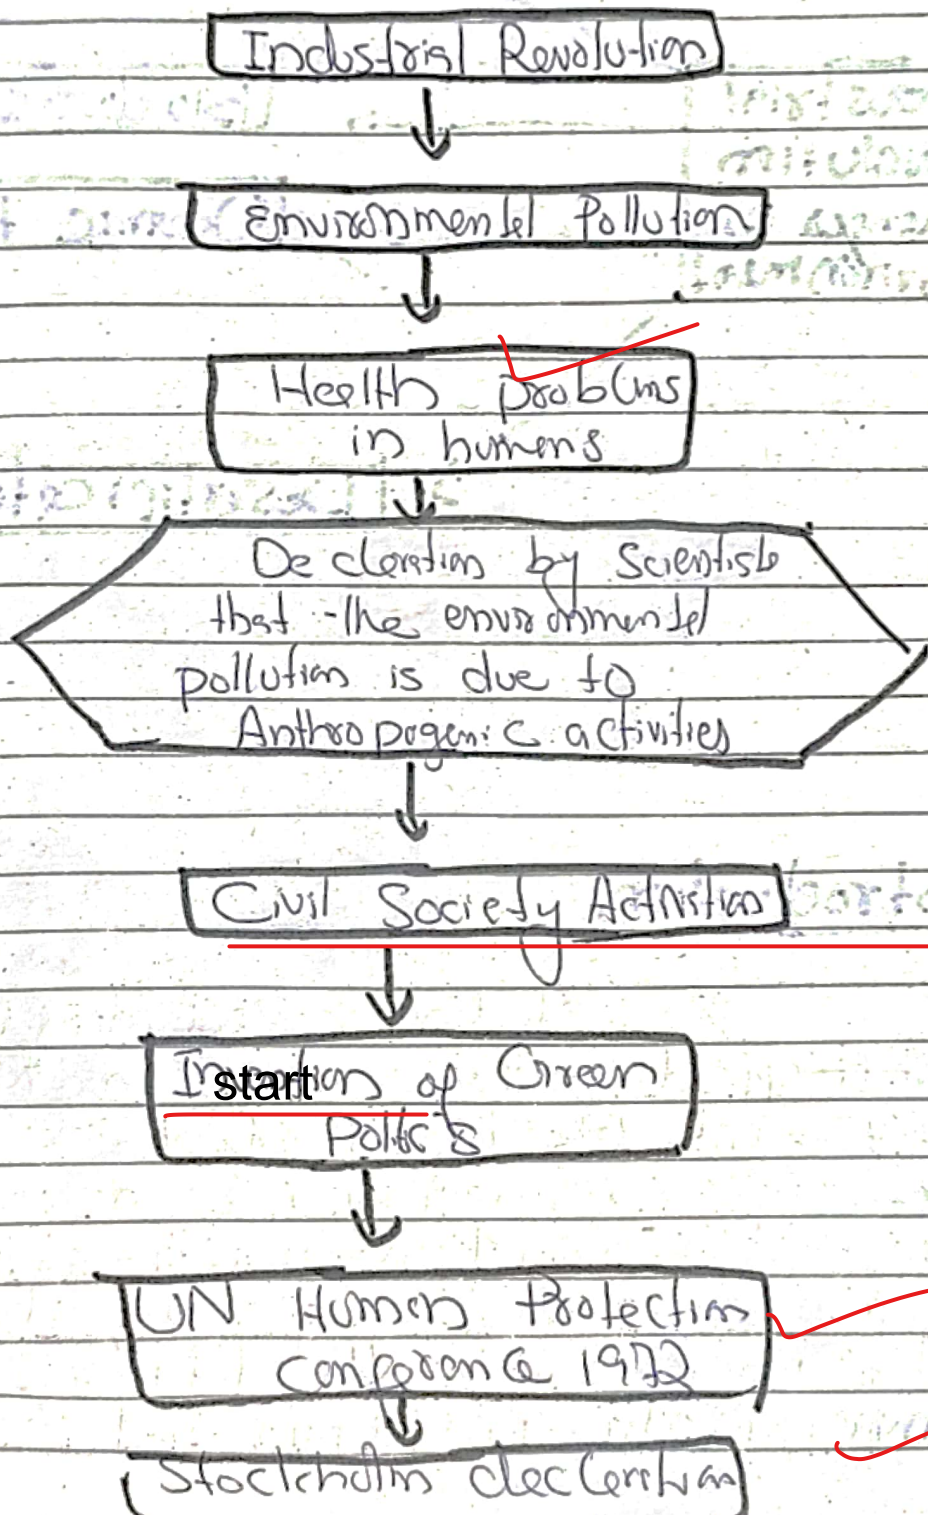 Industrial Revolution
Environmental Pollution
Health problems
in humans
Decleration by Scientists
that the environmental
pollution is due to
Anthropogenic activities
Civil Society
start of Green
Politics
UN Human Protection
conference 1972
Stockholm decleration